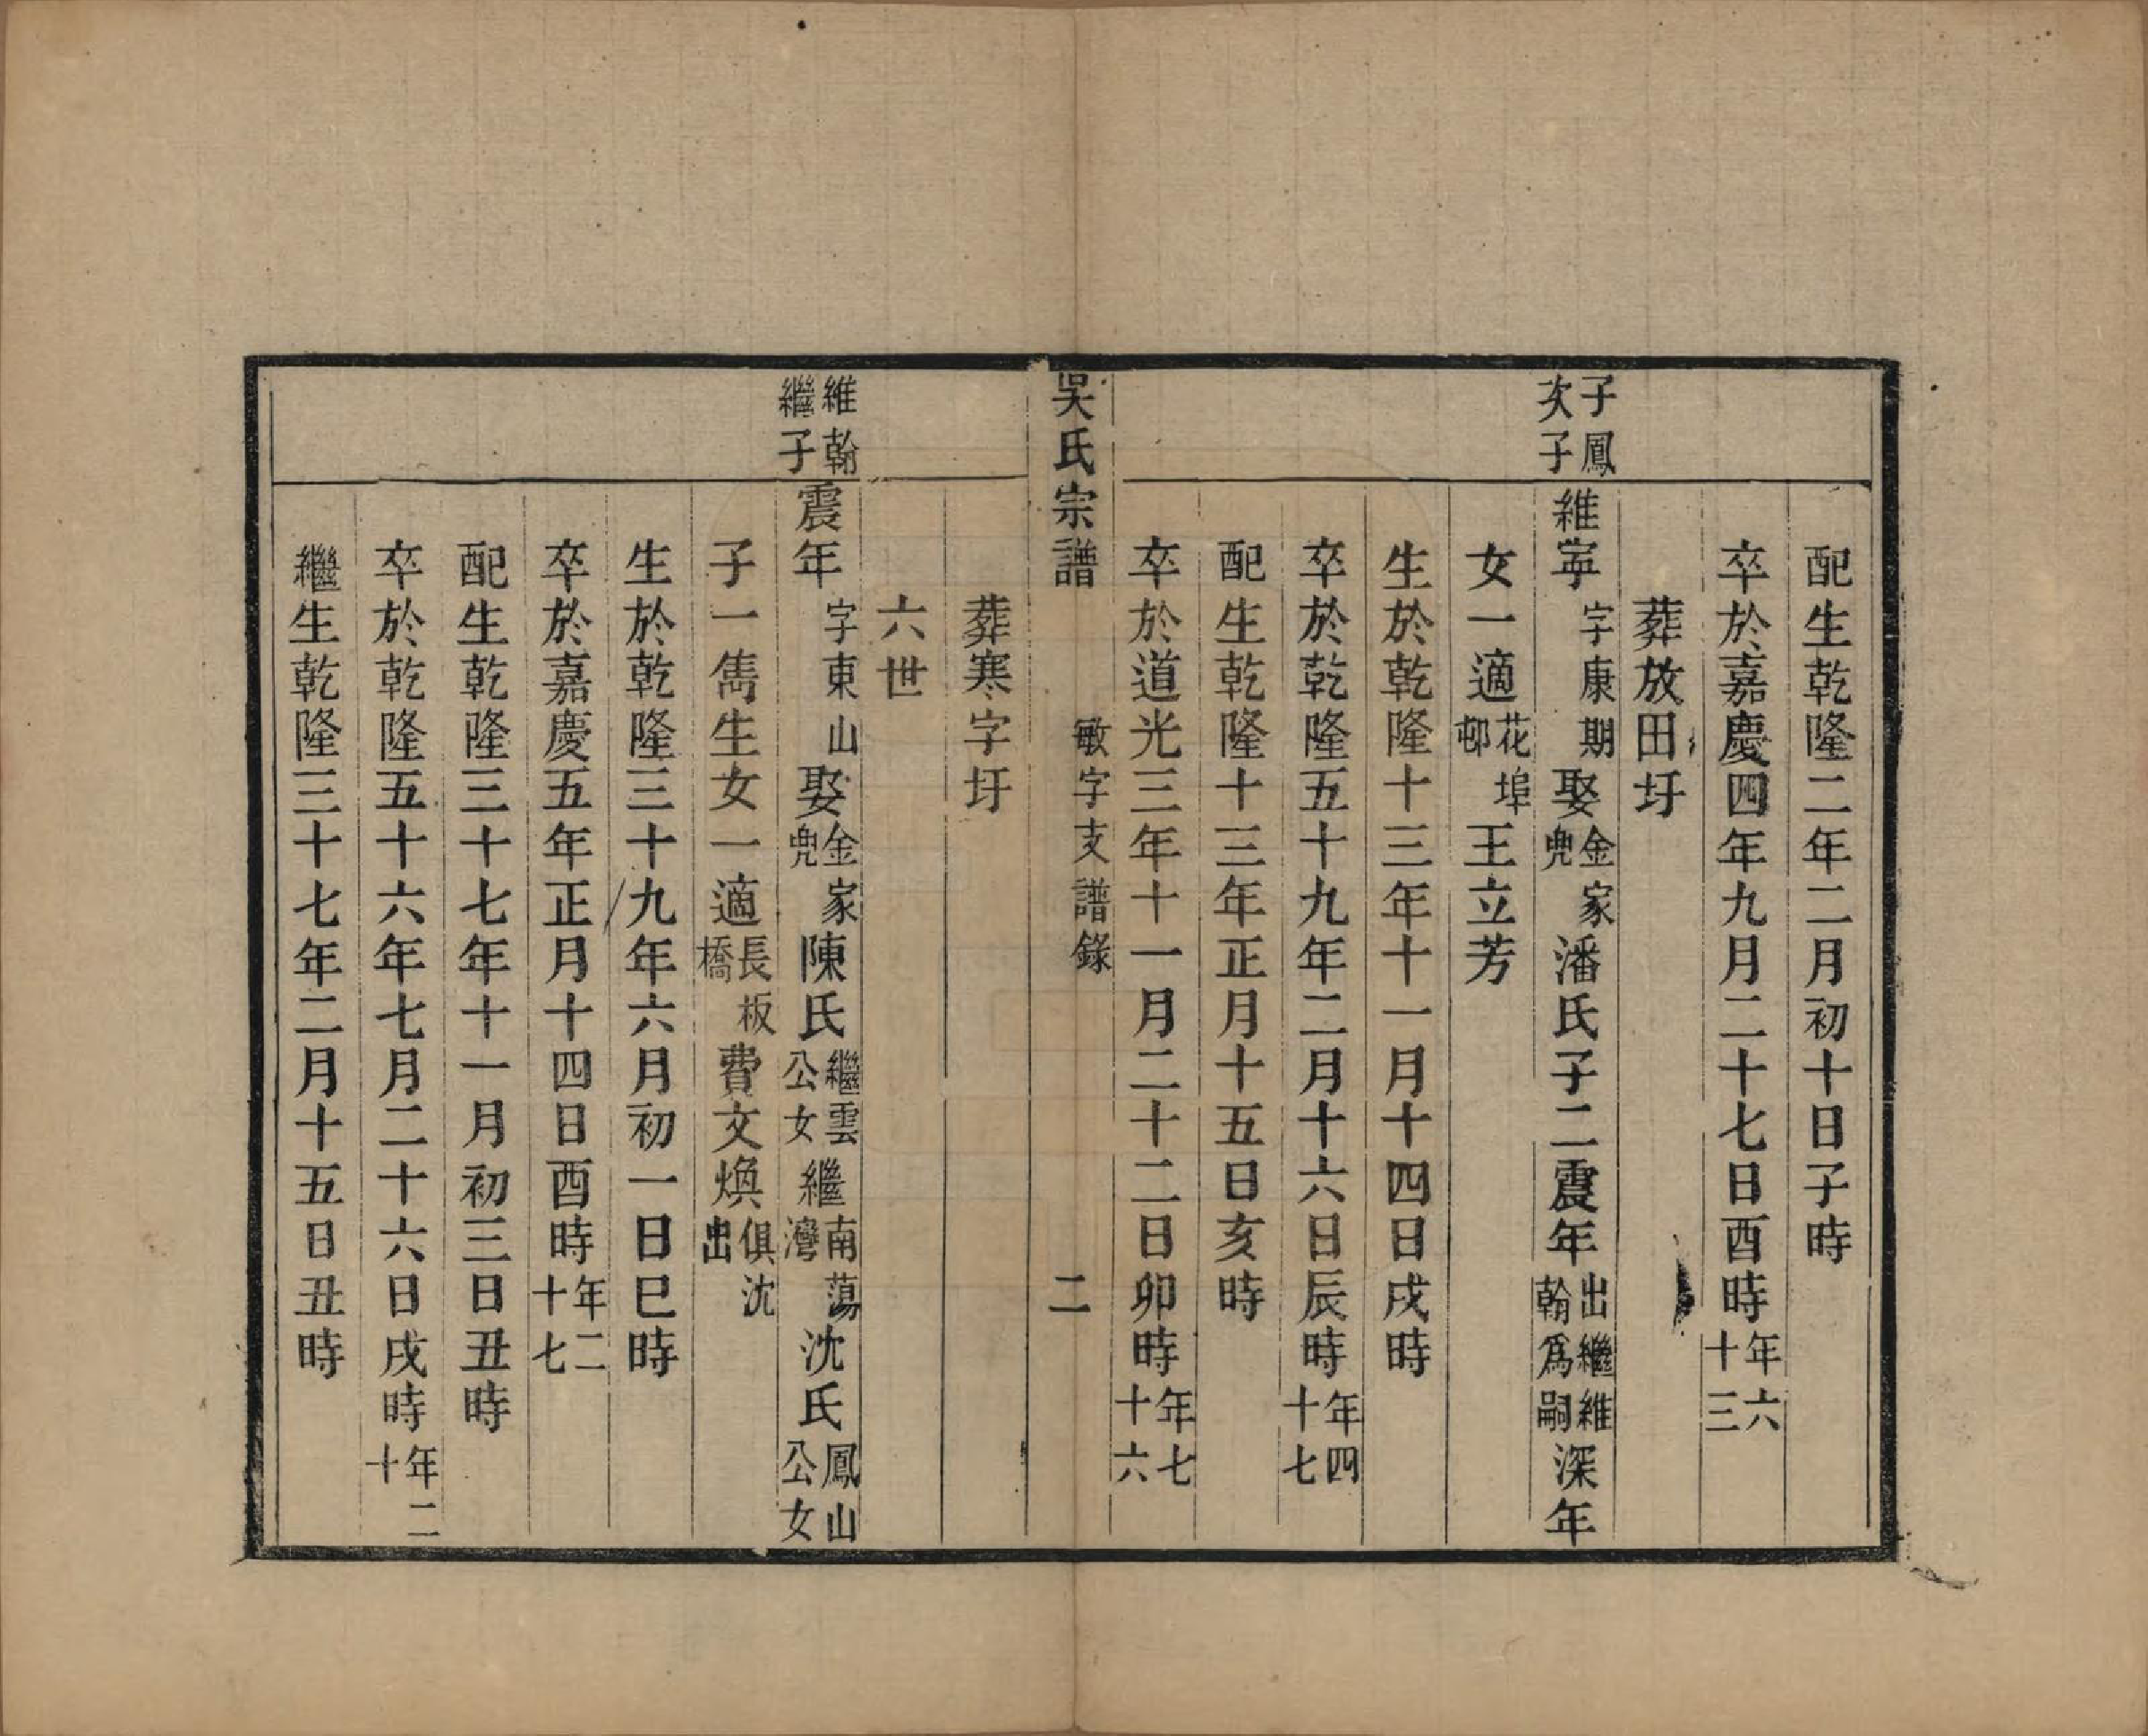 配生乾隆二年二月初十日子時
卒於嘉慶四年九月二十七日酉時年六十三
葬放田圩
子鳳次子
維寜字康期娶金家兜潘氏子二震年出繼維翰爲嗣深年
女一適花埠邨王立芳
生於乾隆十三年十一月十四日戌時
卒於乾隆五十九年二月十六日辰時年四十七
配生乾隆十三年正月十五日亥時
卒於道光三年十一月二十二日卯時年七十六
吳氏宗譜 敏字支譜錄 二
葬寒字圩
六世
維翰繼子
震年字東山娶金家兜陳氏繼雲公女繼南蕩灣沈氏鳳山公女
子一雋生女一適長板橋費文煥俱沈出
生於乾隆三十九年六月初一日巳時
卒於嘉慶五年正月十四日酉時年二十七
配生乾隆三十七年十一月初三日丑時
卒於乾隆五十六年七月二十六日戌時年二十
繼生乾隆三十七年二月十五日丑時